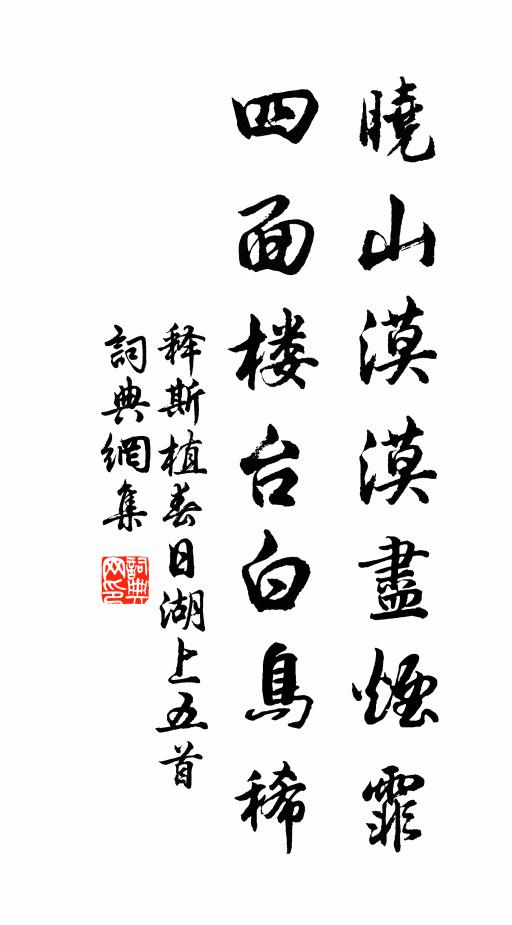 曉山漠漠盡煙霏
四面楼台白鳥稀
释斯植春日湖上五首
詞典網集
詞典网印